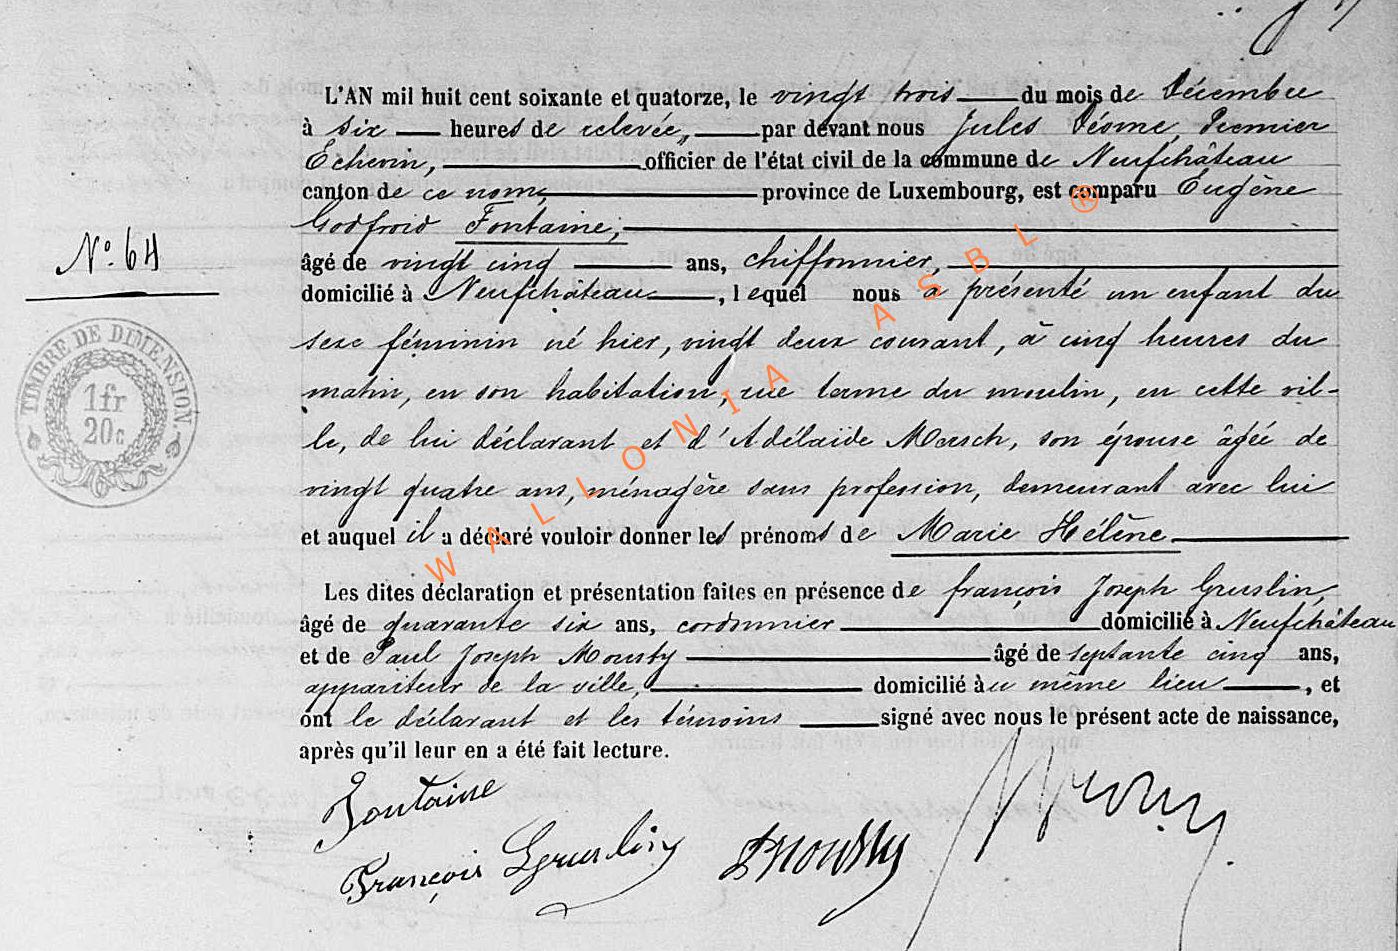 L'AN mil huit cent soixante et quatorze, le vingt trois du mois de Décembre
à six heures de relevée, par devant nous Jules Déome, Premier
Echevin, officier de l'état civil de la commune de Neufchâteau
canton de ce nom, province de Luxembourg, est comparu Eugène
Godfroid Fontaine,
N° 64
âgé de vingt cinq ans, chiffonnier,
domicilié à Neufchâteau, lequel nous a présenté un enfant du
sexe féminin né hier, vingt deux courant, à cinq heures du
matin, en son habitation, rue terme du moulin, en cette vil-
le, de lui déclarant et d'Adélaïde Mersch, son épouse âgée de
vingt quatre ans, ménagère sans profession, demeurant avec lui
et auquel il a déclaré vouloir donner les prénoms de Marie Hélène
TIMBRE DE DIMENSION.
1fr
20c
Les dites déclaration et présentation faites en présence de françois Joseph Gruslin,
âgé de quarante six ans, cordonnier domicilié à Neufchâteau
et de Paul Joseph Mousty âgé de septante cinq ans,
appariteur de la ville, domicilié au même lieu, et
ont le déclarant et les témoins signé avec nous le présent acte de naissance,
après qu'il leur en a été fait lecture.
Fontaine
François Gruslin
PMousty
WALLONIA ASBL ®